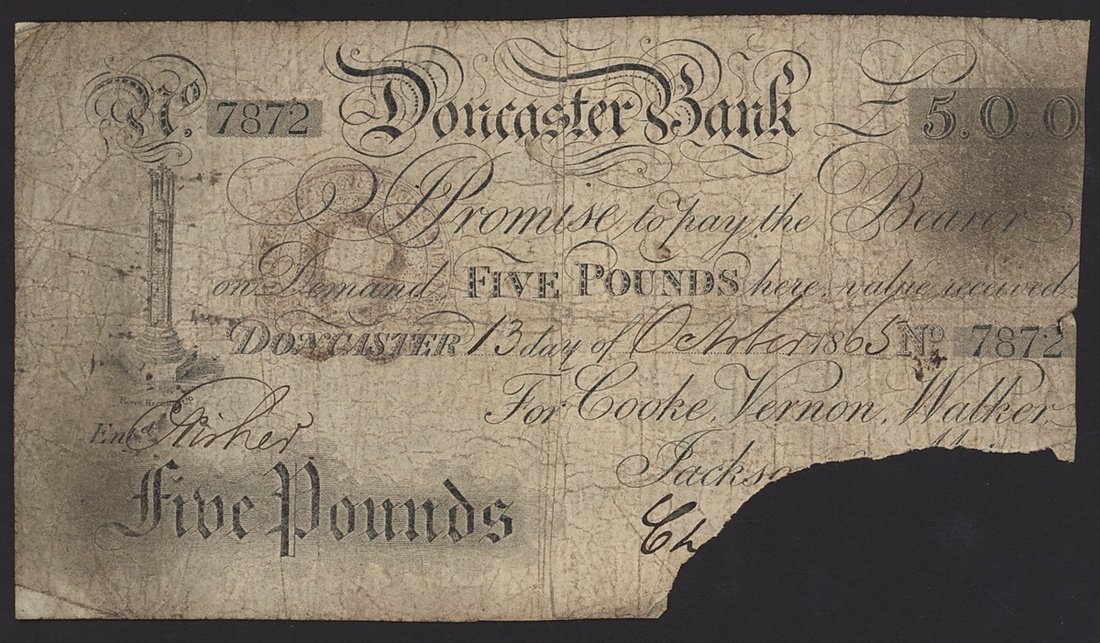 No. 7872 Doncaster Bank £5.0.0
I Promise to pay the Bearer
on Demand FIVE POUNDS here, value received
DONCASTER 13 day of October 1865 No 7872
For Cooke, Vernon, Walker
Jackso
Entd Fisher
Ch
Five Pounds